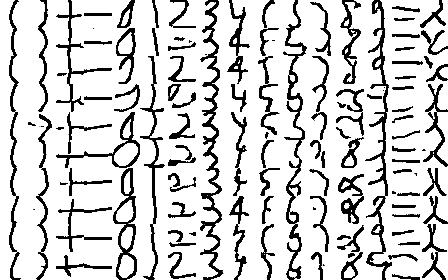 ( ) + - 0 1 2 3 4 5 6 7 8 9 =
( ) + - 0 1 2 3 4 5 6 7 8 9 =
( ) + - 0 1 2 3 4 5 6 7 8 9 =
( ) + - 0 1 2 3 4 5 6 7 8 9 =
( ) + - 0 1 2 3 4 5 6 7 8 9 =
( ) + - 0 1 2 3 4 5 6 7 8 9 =
( ) + - 0 1 2 3 4 5 6 7 8 9 =
( ) + - 0 1 2 3 4 5 6 7 8 9 =
( ) + - 0 1 2 3 4 5 6 7 8 9 =
( ) + - 0 1 2 3 4 5 6 7 8 9 =